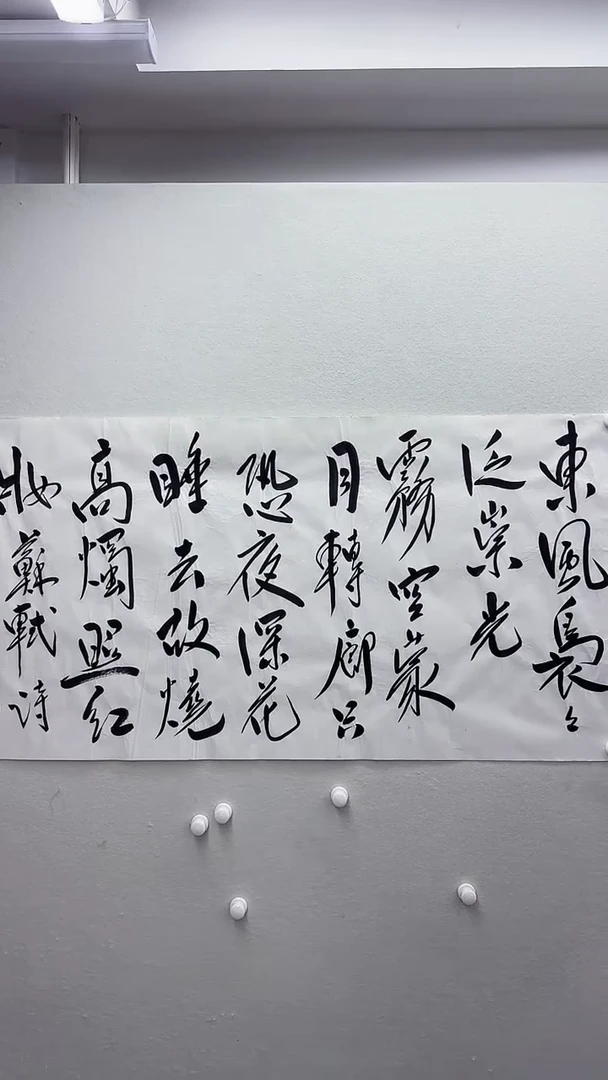 東風裊々
泛崇光
霧空蒙
月轉廊只
恐夜深花
睡去故燒
高燭照紅
妝蘇軾詩